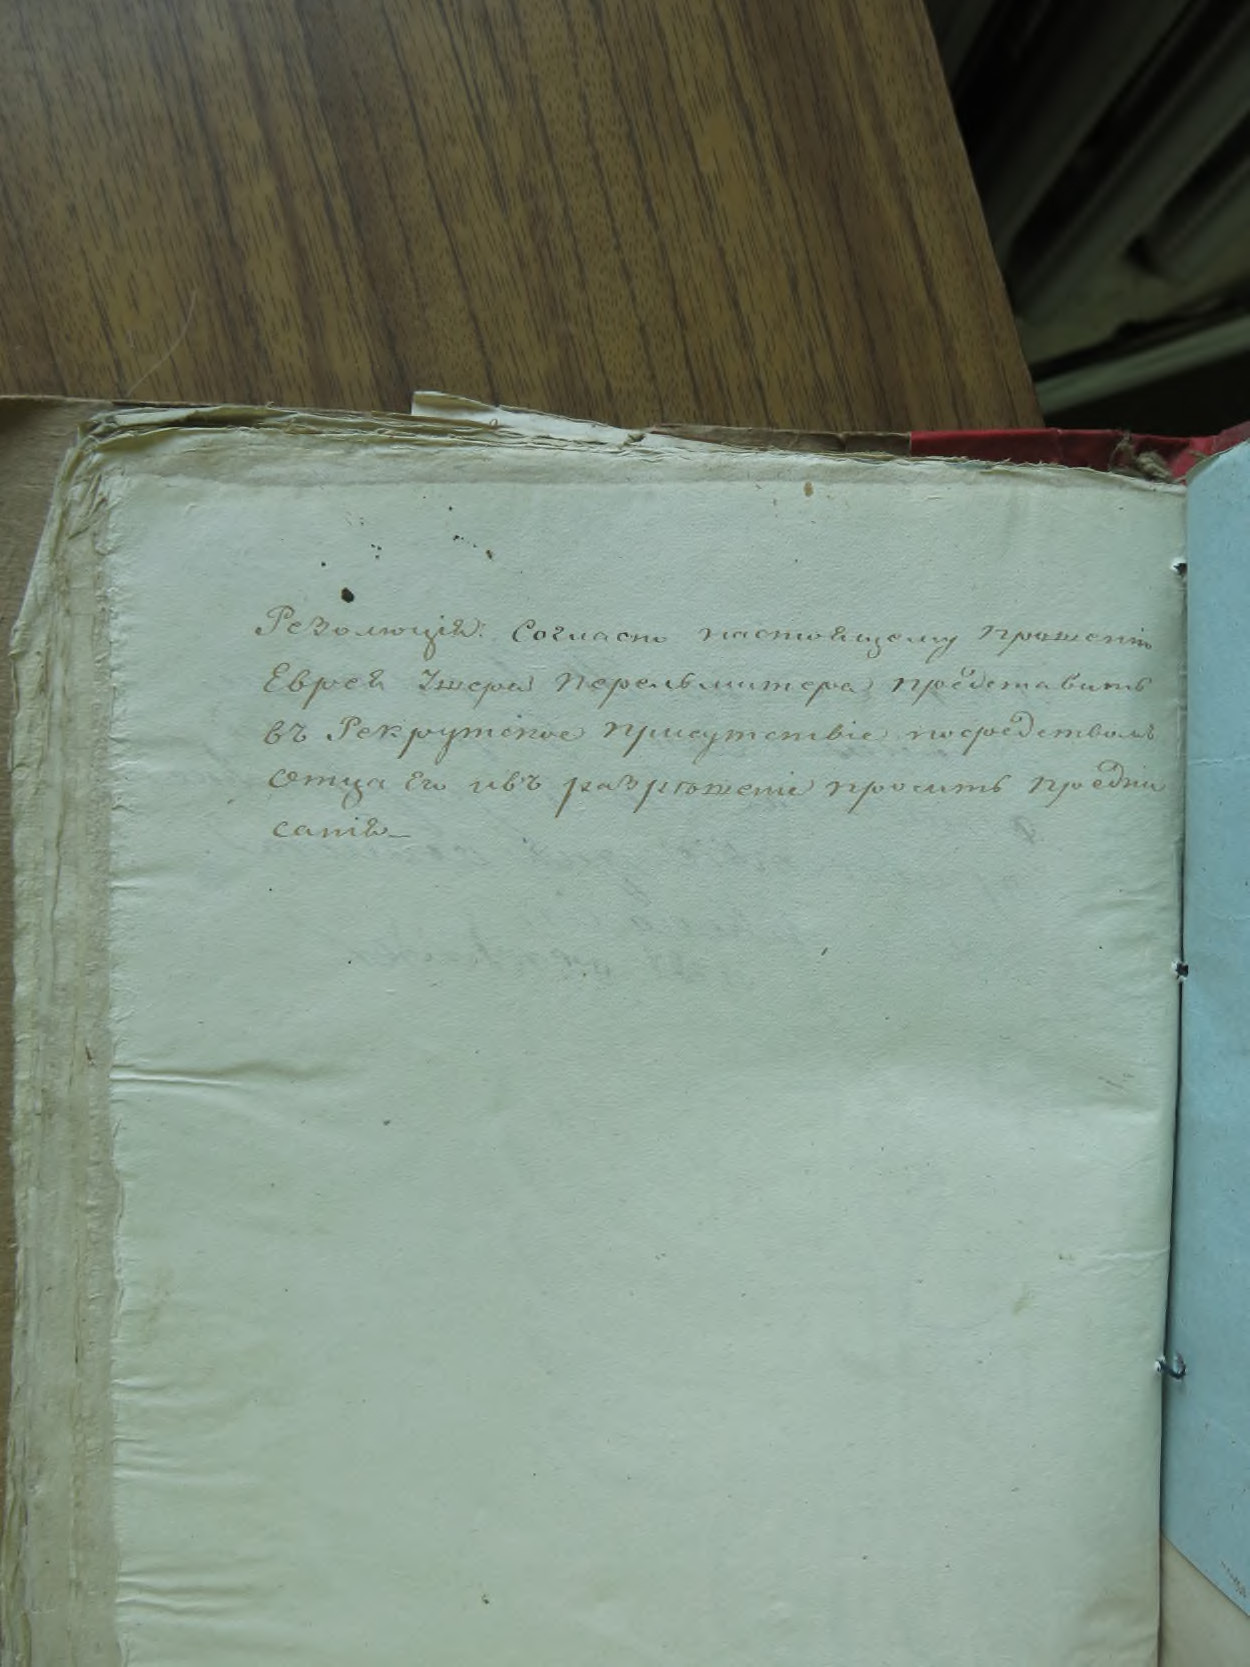 Резолюція: Согласно настоящему прошенію
Еврея Ушера Перельмитера представить
въ Рекрутское Присутствіе посредствомъ
Отца Его и въ разрѣшеніе просить предпи
санія_